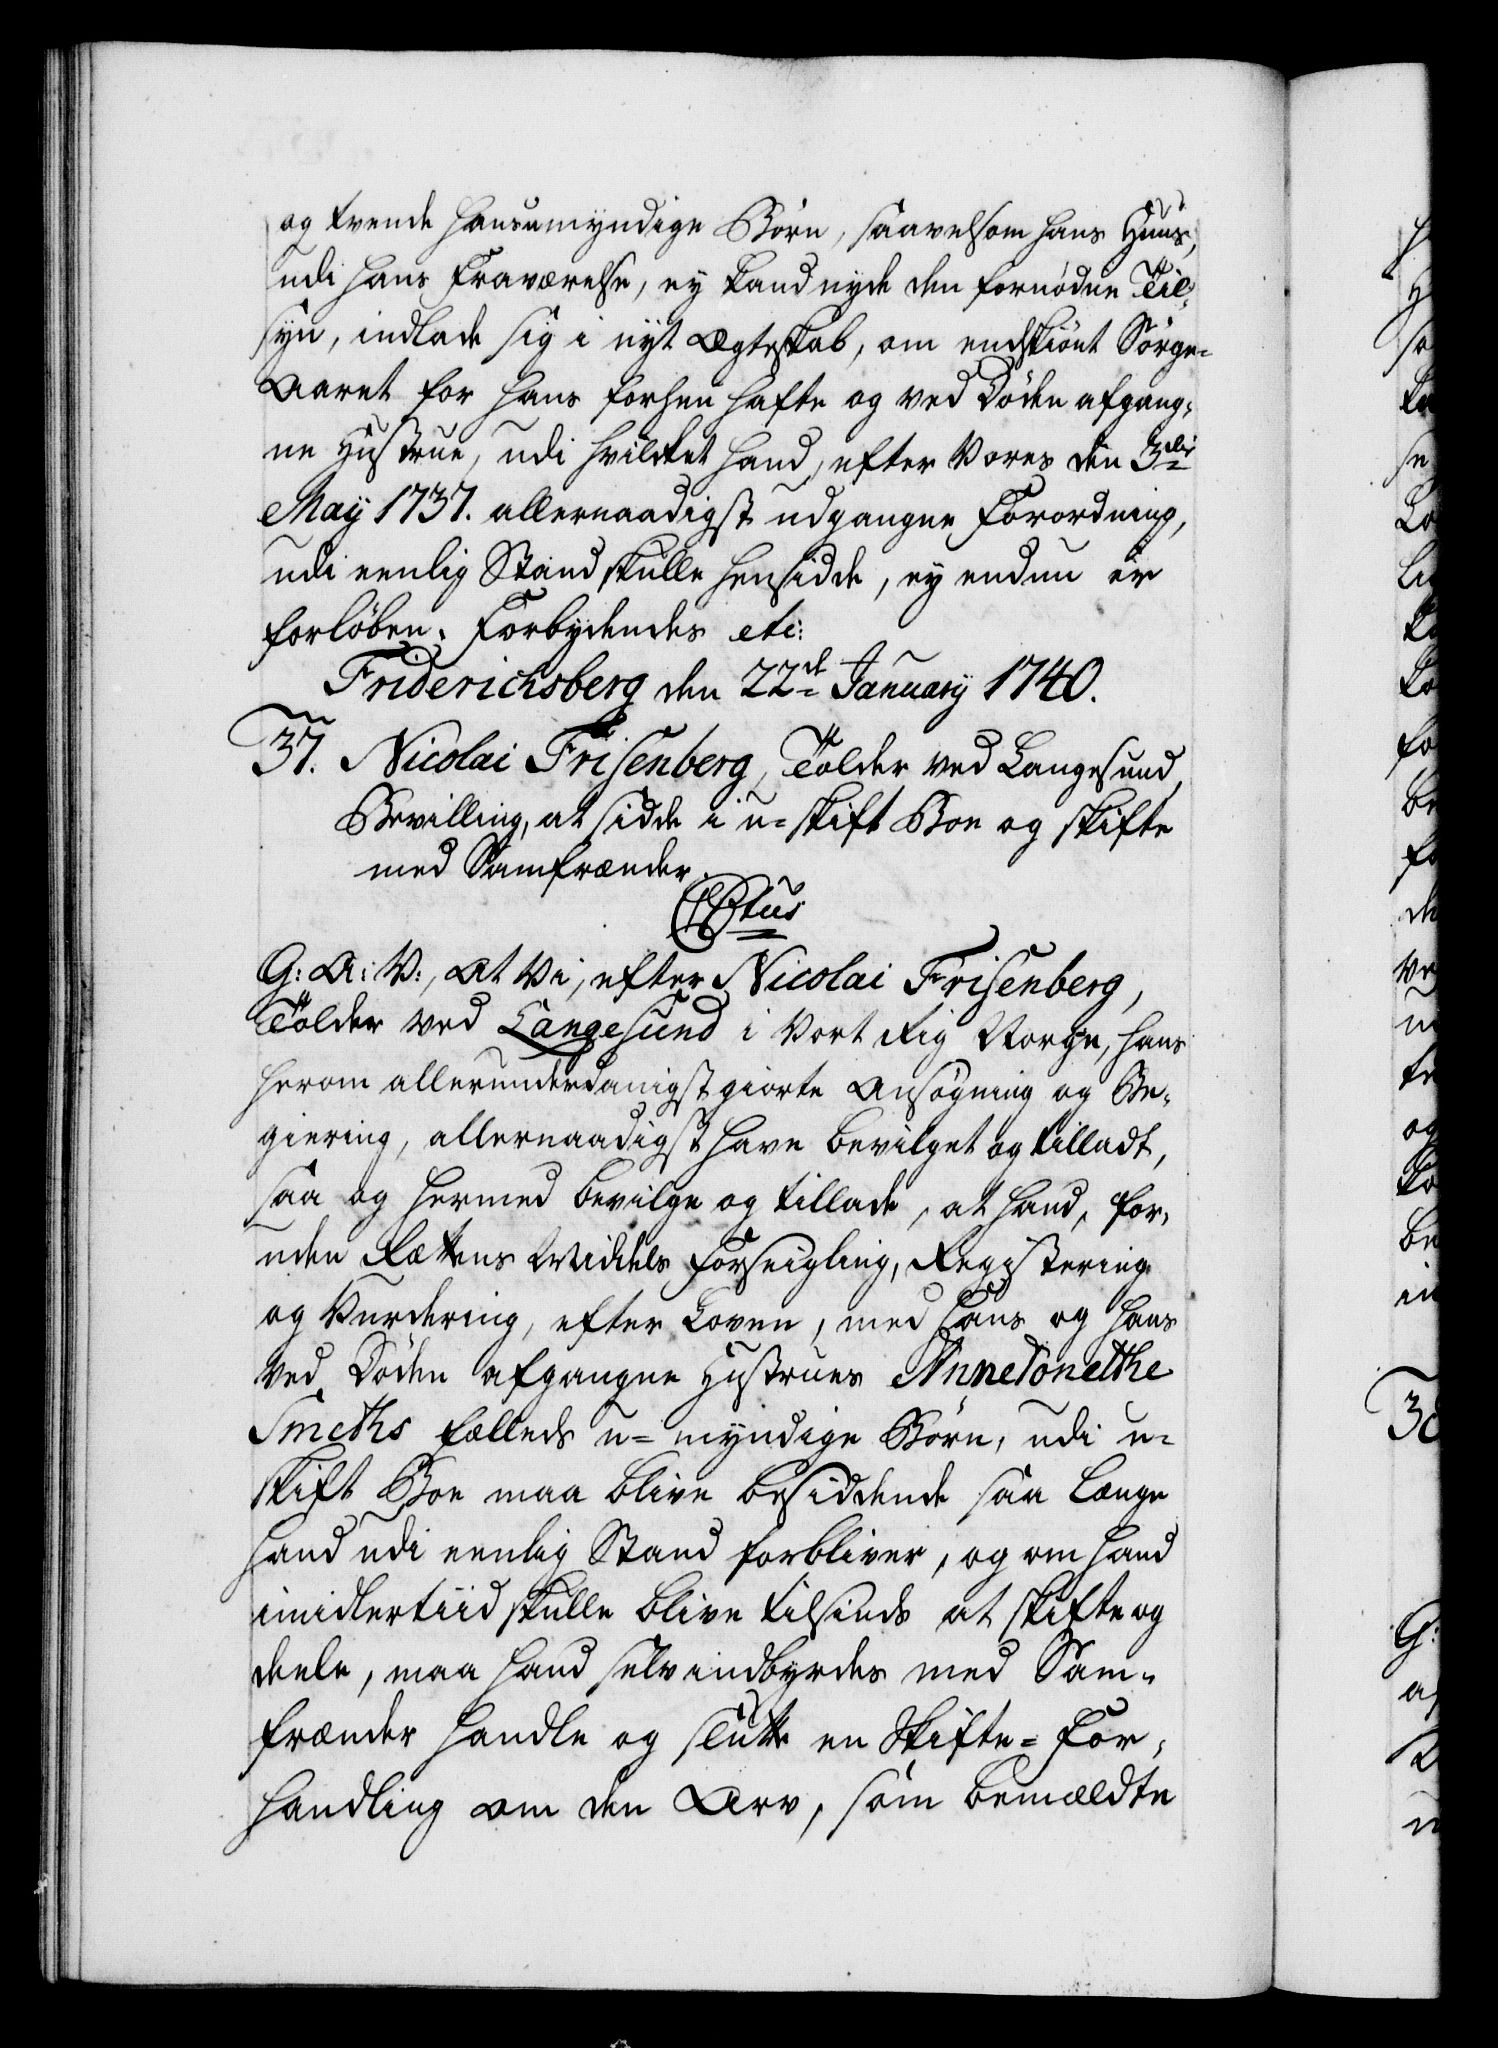 og tvende hans umyndige Börn, saavelsom hans Huus,
udi hans Fraværelse, ey kand nyde den fornödne Til-
syn, indlade sig i nyt Ægteskab, om endskiönt Sörge-
Aaret for hans forhen hafte og ved Döden afgang-
ne Hustrue, udi hvilket hand, efter Vores den 3die
May 1737. allernaadigst udgangne Forordning,
udi eenlig Stand skulle hensidde, ey endnu er
forlöben. Forbydendes etc:
Friderichsberg den 22de January 1740.
37. Nicolai Frisenberg, Tolder ved Langesund,
Bevilling, at sidde i u-skift Boe og skifte
med Samfrænder.
G: A: V:, At Vi, efter Nicolai Frisenberg,
Tolder ved Langesund i Vort Rige Norge, hans
herom allerunderdanigst giorte Ansögning og Be-
giering, allernaadigst have bevilget og tilladt,
saa og hermed bevilge og tillade, at hand, for-
uden Rættens Middels Forseigling, Registering
og Vurdering, efter Loven, med hans og hans
ved Döden afgangne Hustrues Anne Tonethe
Smeths fælleds u-myndige Börn, udi u-
skift Boe maa blive besiddende saa længe
hand udi eenlig Stand forbliver, og om hand
imidlertiid skulle blive tilsinds at skifte og
deele, maa hand selv indbyrdes med Sam-
frænder handle og slutte en Skifte-For-
handling om den Arv, som bemældte